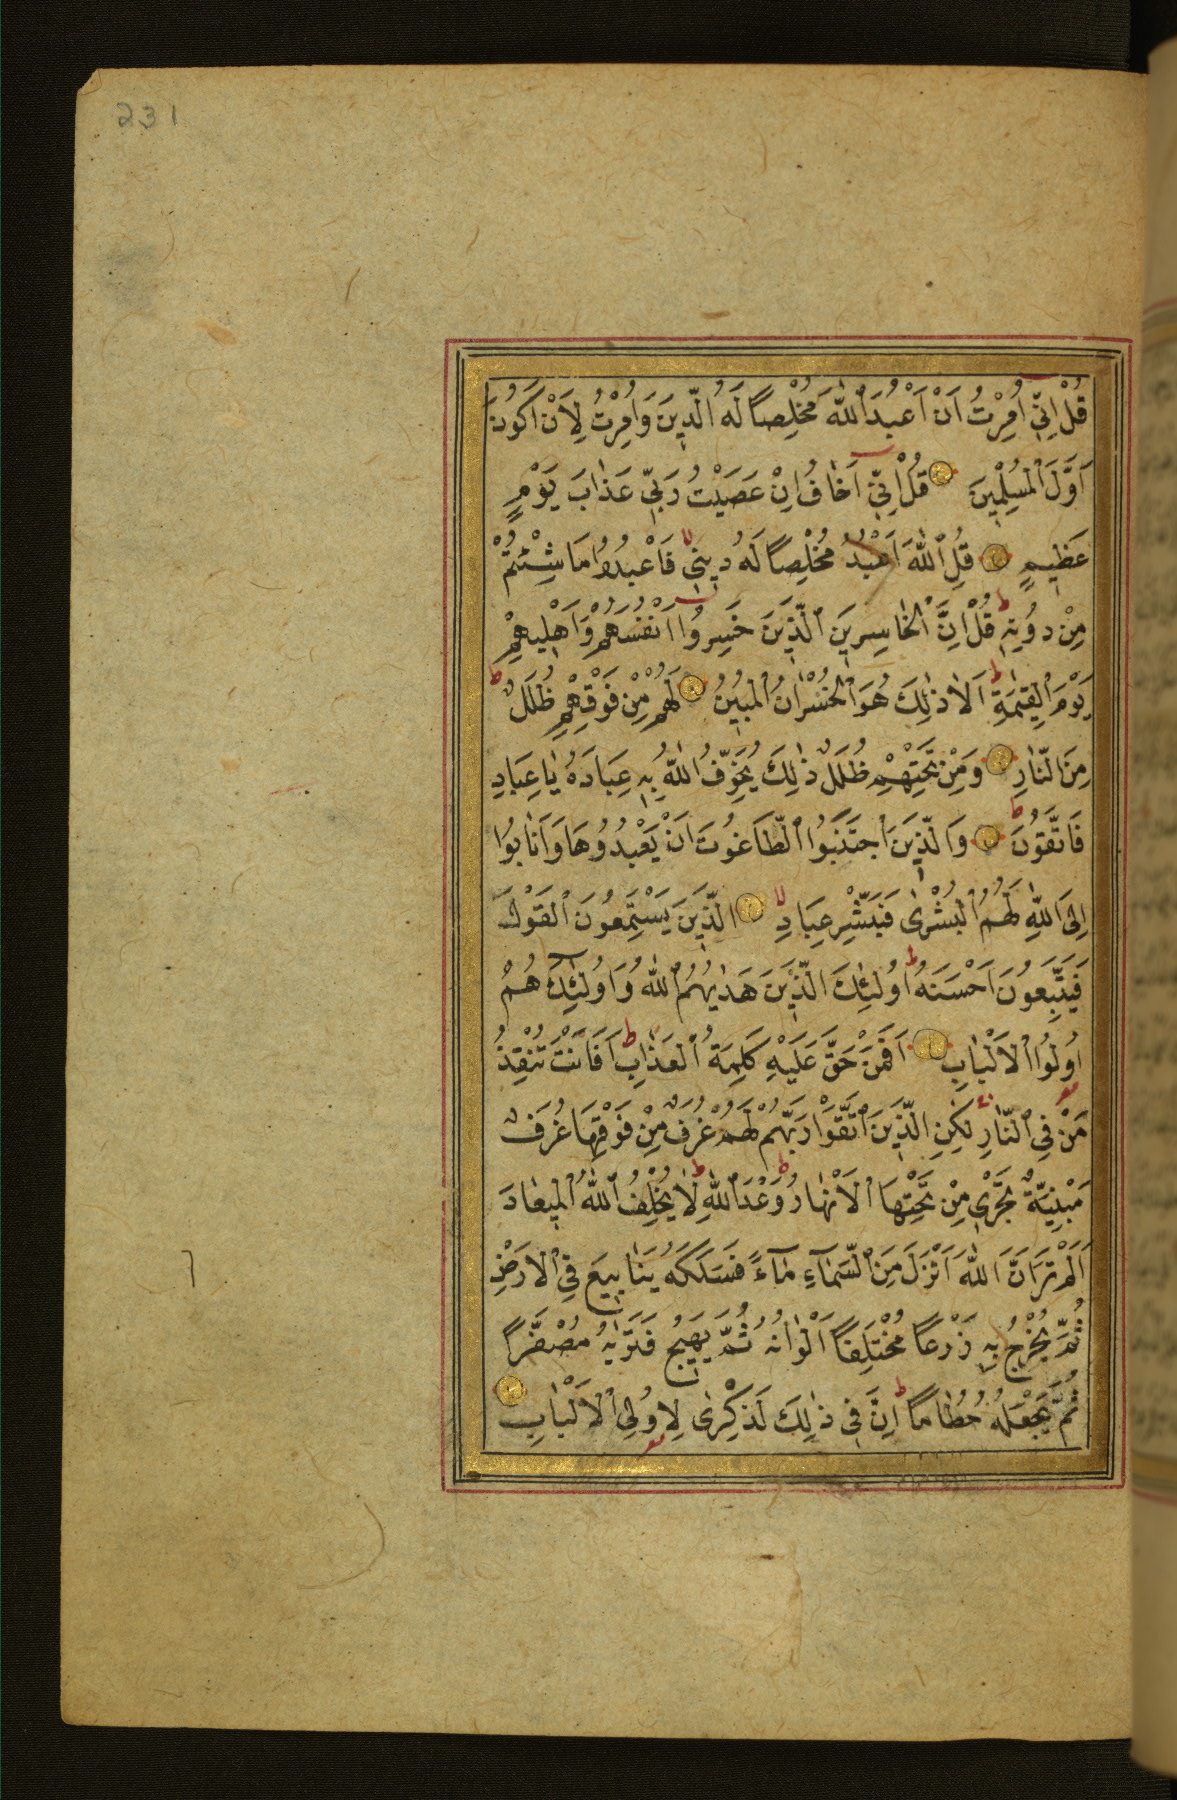 231
قُلْ اِنّٖى اُمِرْتُ اَنْ اَعْبُدَ اللّٰهَ مُخْلِصًا لَهُ الدّٖينَ وَاُمِرْتُ لِاَنْ اَكُونَ
اَوَّلَ الْمُسْلِمٖينَ قُلْ اِنّٖى اَخَافُ اِنْ عَصَيْتُ رَبّٖى عَذَابَ يَوْمٍ
عَظٖيمٍ قُلِ اللّٰهَ اَعْبُدُ مُخْلِصًا لَهُ دٖينٖى فَاعْبُدُوا مَا شِئْتُمْ
مِنْ دُونِهٖ قُلْ اِنَّ الْخَاسِرٖينَ الَّذٖينَ خَسِرُوا اَنْفُسَهُمْ وَاَهْلٖيهِمْ
يَوْمَ الْقِيٰمَةِ اَلَا ذٰلِكَ هُوَ الْخُسْرَانُ الْمُبٖينُ لَهُمْ مِنْ فَوْقِهِمْ ظُلَلٌ
مِنَ النَّارِ وَمِنْ تَحْتِهِمْ ظُلَلٌ ذٰلِكَ يُخَوِّفُ اللّٰهُ بِهٖ عِبَادَهُ يَا عِبَادِ
فَاتَّقُونِ وَالَّذٖينَ اجْتَنَبُوا الطَّاغُوتَ اَنْ يَعْبُدُوهَا وَاَنَابُوا
اِلَى اللّٰهِ لَهُمُ الْبُشْرٰى فَبَشِّرْ عِبَادِ الَّذٖينَ يَسْتَمِعُونَ الْقَوْلَ
فَيَتَّبِعُونَ اَحْسَنَهُ اُولٰئِكَ الَّذٖينَ هَدٰيهُمُ اللّٰهُ وَاُولٰئِكَ هُمْ
اُولُوا الْاَلْبَابِ اَفَمَنْ حَقَّ عَلَيْهِ كَلِمَةُ الْعَذَابِ اَفَاَنْتَ تُنْقِذُ
مَنْ فِى النَّارِ لٰكِنِ الَّذٖينَ اتَّقَوْا رَبَّهُمْ لَهُمْ غُرَفٌ مِنْ فَوْقِهَا غُرَفٌ
مَبْنِيَّةٌ تَجْرٖى مِنْ تَحْتِهَا الْاَنْهَارُ وَعْدَ اللّٰهِ لَا يُخْلِفُ اللّٰهُ الْمٖيعَادَ
اَلَمْ تَرَ اَنَّ اللّٰهَ اَنْزَلَ مِنَ السَّمَآءِ مَآءً فَسَلَكَهُ يَنَابٖيعَ فِى الْاَرْضِ
ثُمَّ يُخْرِجُ بِهٖ زَرْعًا مُخْتَلِفًا اَلْوَانُهُ ثُمَّ يَهٖيجُ فَتَرٰيهُ مُصْفَرًّا
ثُمَّ يَجْعَلُهُ حُطَامًا اِنَّ فٖى ذٰلِكَ لَذِكْرٰى لِاُولِى الْاَلْبَابِ